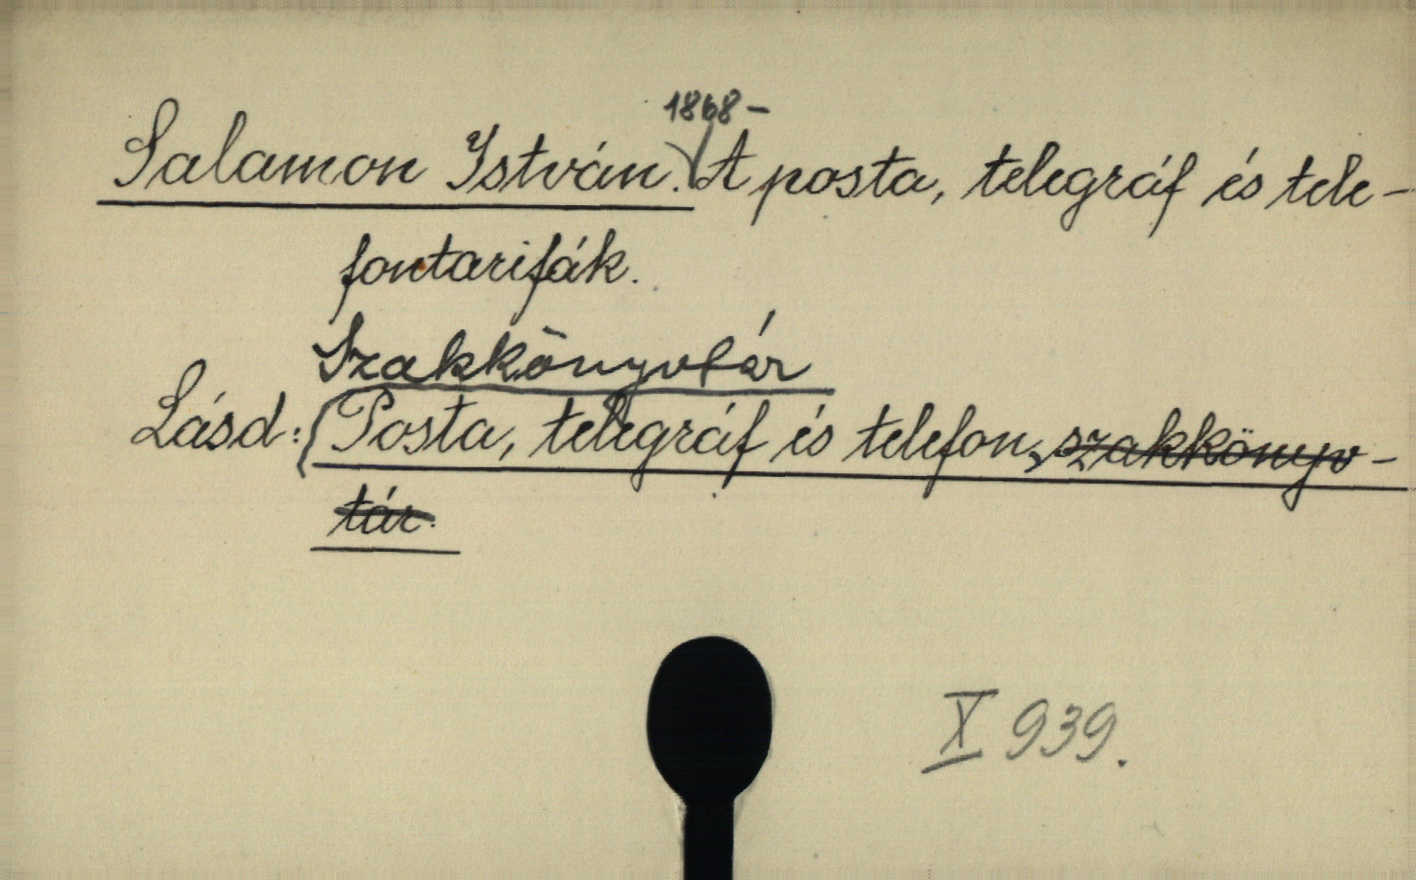 1868-
Salamon István. A posta, telegráf és tele-
fontarifák.
Szakkönyvtár
Lásd: (Posta, telegráf és telefon, szakkönyv-
tár.
X 939.